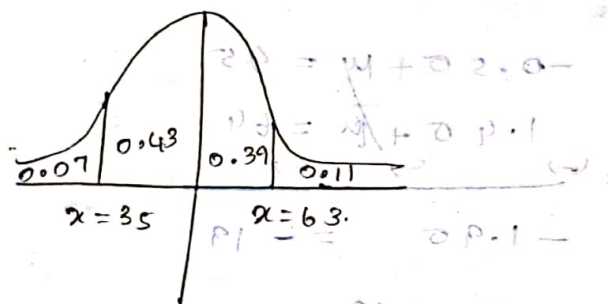 0.07 0.43 0.39 0.11
x = 35 x = 63.